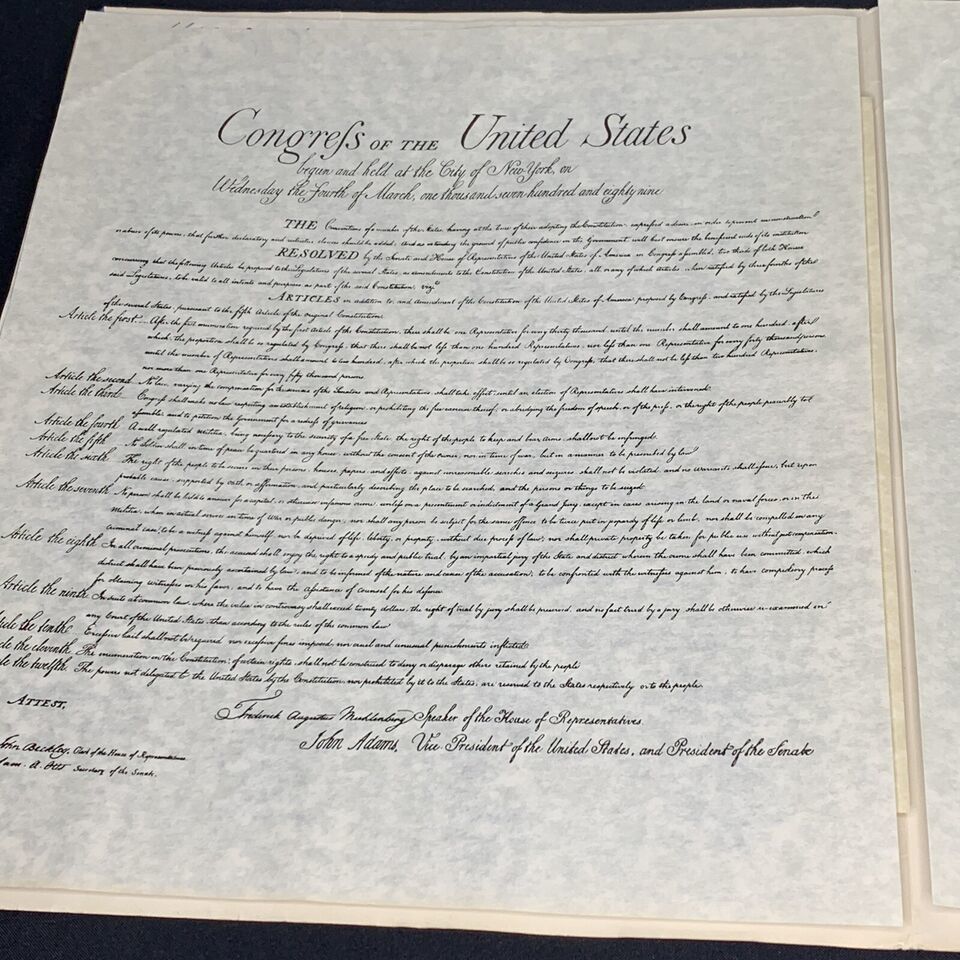 Congreſs OF THE United States
begun and held at the City of New-York, on
Wednesday the Fourth of March, one thousand seven hundred and eighty nine
THE Conventions of a number of the States, having at the time of their adopting the Constitution, expressed a desire, in order to prevent misconstruction
or abuse of its powers, that further declaratory and restrictive clauses should be added: And as extending the ground of public confidence in the Government, will best ensure the beneficent ends of its institution
RESOLVED by the Senate and House of Representatives of the United States of America in Congreſs aſsembled, two thirds of both Houses
concurring that the following Articles be proposed to the Legislatures of the several States, as amendments to the Constitution of the United States, all, or any of which articles, when ratified by three fourths of the
said Legislatures, to be valid to all intents and purposes as part of the said Constitution; vizt
ARTICLES in addition to, and Amendment of the Constitution of the United States of America, proposed by Congreſs, and ratified by the Legislatures
of the several States, pursuant to the fifth Article of the original Constitution.
Article the first... After the first enumeration required by the first Article of the Constitution, there shall be one Representative for every thirty thousand, until the number shall amount to one hundred, after
which, the proportion shall be so regulated by Congreſs, that there shall be not leſs than one hundred Representatives, nor leſs than one Representative for every forty thousand persons,
until the number of Representatives shall amount to two hundred, after which the proportion shall be so regulated by Congreſs, that there shall not be leſs than two hundred Representatives,
nor more than one Representative for every fifty thousand persons.
Article the second No law, varying the compensation for the services of the Senators and Representatives, shall take effect, until an election of Representatives shall have intervened.
Article the third Congreſs shall make no law respecting an establishment of religion, or prohibiting the free exercise thereof; or abridging the freedom of speech, or of the preſs, or the right of the people peaceably to
aſsemble, and to petition the Government for a redreſs of grievances
Article the fourth A well regulated militia, being neceſsary to the security of a free State, the right of the people to keep and bear arms, shall not be infringed.
Article the fifth No Soldier shall, in time of peace be quartered in any house, without the consent of the owner, nor in time of war, but in a manner to be prescribed by law
Article the sixth The right of the people to be secure in their persons, houses, papers, and effects, against unreasonable searches and seizures, shall not be violated, and no Warrants shall iſsue, but upon
probable cause, supported by oath or affirmation, and particularly describing the place to be searched, and the persons or things to be seized
Article the seventh No person shall be held to answer for a capital, or otherwise infamous crime, unleſs on a presentment or indictment of a Grand Jury, except in cases arising in the land or naval forces, or in the
Militia, when in actual service in time of War or public danger; nor shall any person be subject for the same offence to be twice put in jeopardy of life or limb; nor shall be compelled in any
criminal case, to be a witneſs against himself, nor be deprived of life, liberty, or property, without due proceſs of law; nor shall private property be taken for public use without just compensation.
Article the eighth In all criminal prosecutions, the accused shall enjoy the right to a speedy and public trial, by an impartial jury of the State and district wherein the crime shall have been committed, which
district shall have been previously ascertained by law, and to be informed of the nature and cause of the accusation; to be confronted with the witneſses against him; to have compulsory proceſs
for obtaining witneſses in his favor, and to have the aſsistance of counsel for his defence
Article the ninth In suits at common law, where the value in controversy shall exceed twenty dollars, the right of trial by jury shall be preserved, and no fact tried by a jury, shall be otherwise re-examined in
any Court of the United States, than according to the rules of the common law
icle the tenth Exceſsive bail shall not be required nor exceſsive fines imposed, nor cruel and unusual punishments inflicted
le the eleventh The enumeration in the Constitution, of certain rights, shall not be construed to deny or disparage others retained by the people
le the twelfth The powers not delegated to the United States by the Constitution, nor prohibited by it to the States, are reserved to the States respectively or to the people.
ATTEST,
Frederick Augustus Muhlenberg Speaker of the House of Representatives.
John Adams, Vice President of the United States, and President of the Senate
John Beckley, Clerk of the House of Representatives
Sam. A. Otis Secretary of the Senate.